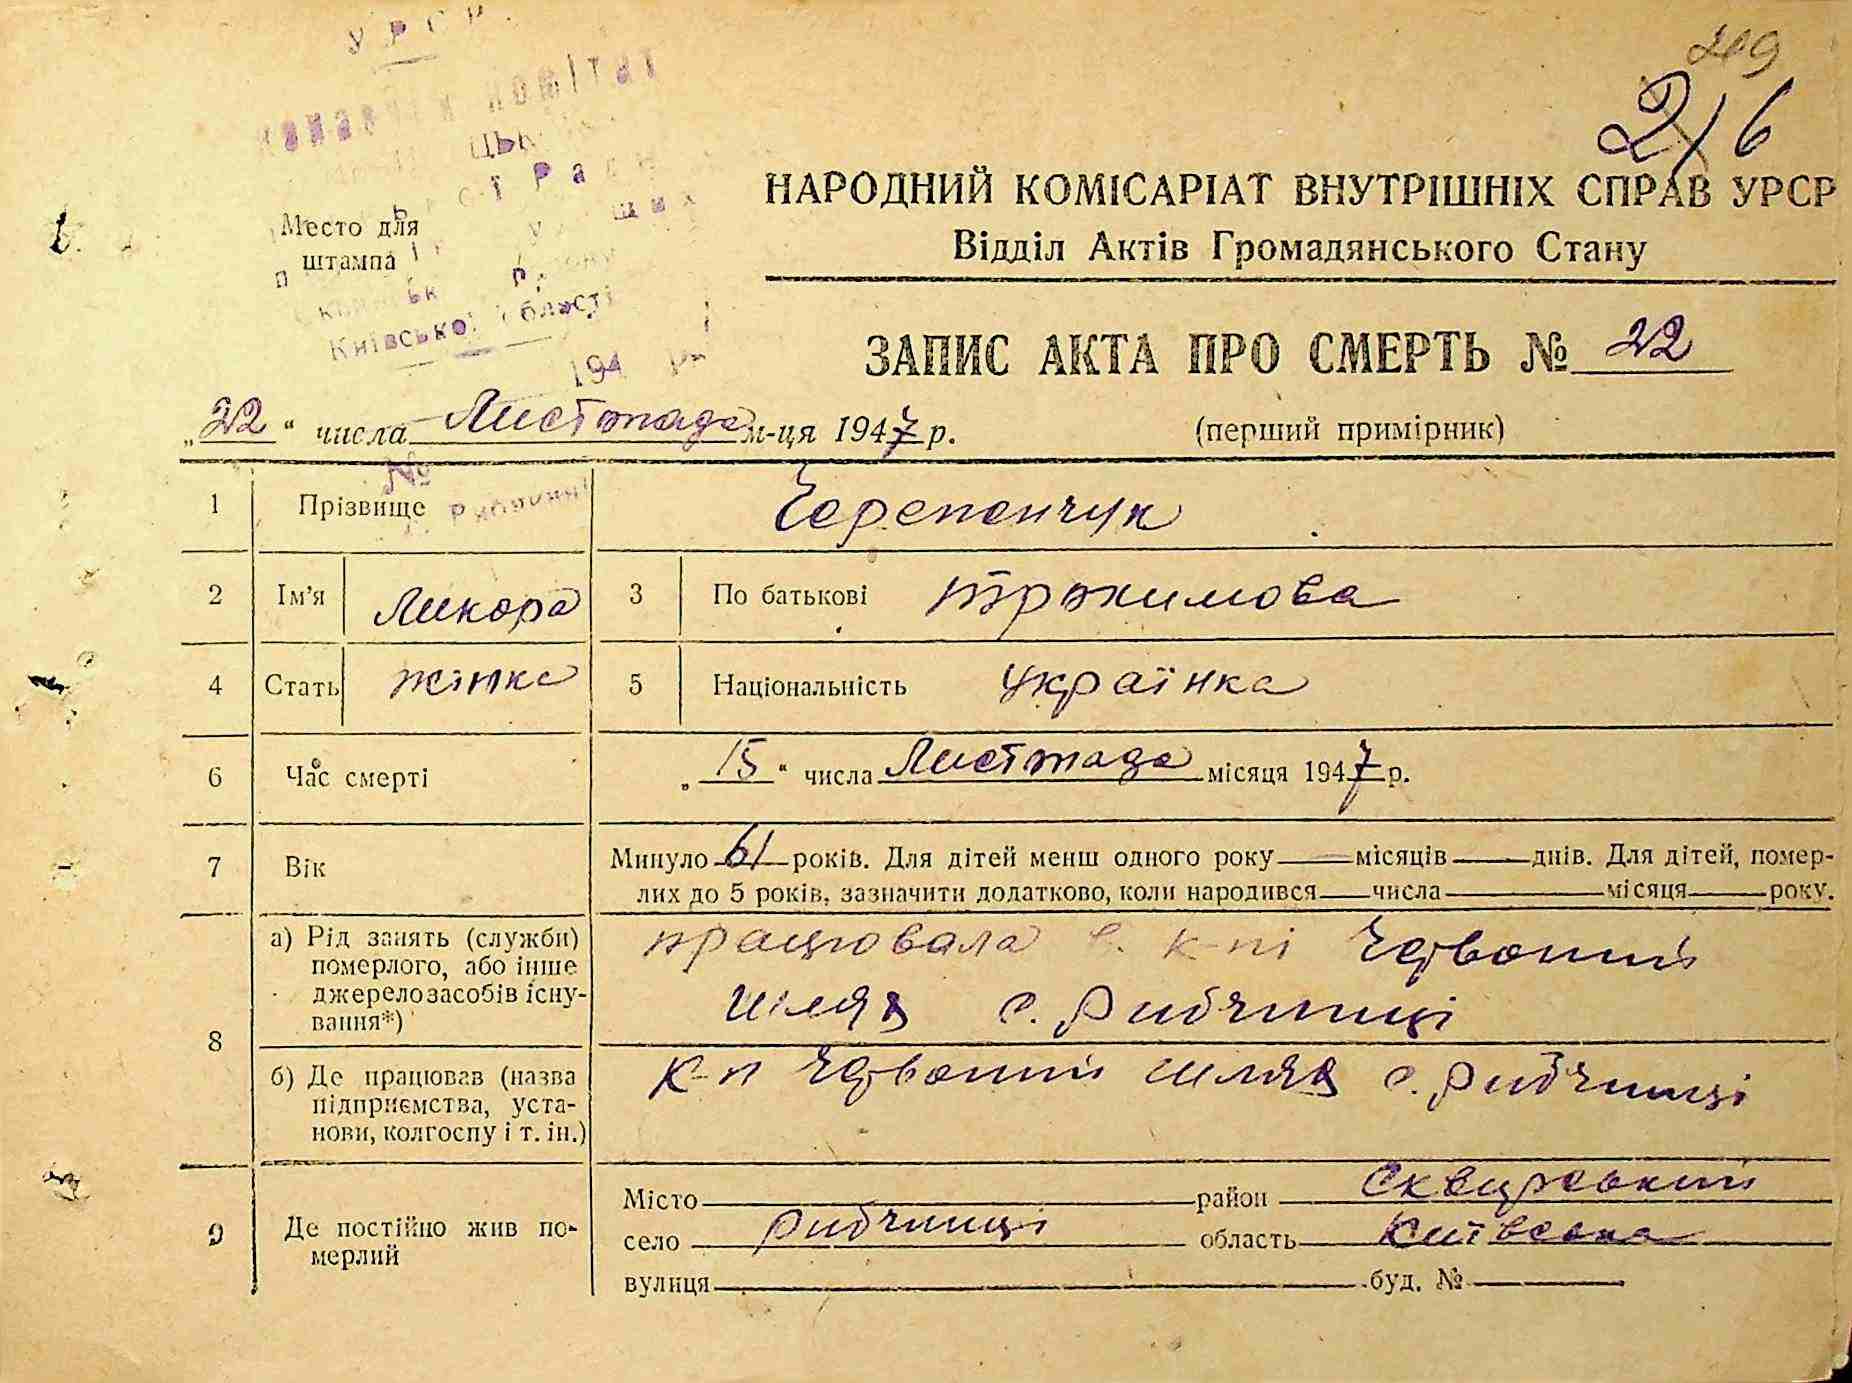 УРСР
комітет
Київської області
194 р.
209
216
НАРОДНИЙ КОМІСАРІАТ ВНУТРІШНІХ СПРАВ УРСР
Відділ Актів Громадянського Стану
Место для
штампа
ЗАПИС АКТА ПРО СМЕРТЬ № 22
„22“ числа Листопада м-ця 1947 р. (перший примірник)
№
1 Прізвище Черепончук
2 Ім'я Ликора 3 По батькові трохимова
4 Стать жінка 5 Національність українка
6 Час смерті „15“ числа Листопада місяця 1947 р.
7 Вік Минуло 61 років. Для дітей менш одного року — місяців — днів. Для дітей, помер-
лих до 5 років, зазначити додатково, коли народився — числа — місяця — року.
8 а) Рід занять (служби)
померлого, або інше
джерело засобів існу-
вання*)
працювала в. к-пі Червоний
шлях с. Рибчинці
б) Де працював (назва
підприємства, уста-
нови, колгоспу і т. ін.)
к-п Червоний шлях с. Рибчинці
9 Де постійно жив по-
мерлий
Місто — район Сквирський
село Рибчинці область Київська
вулиця — буд. № —